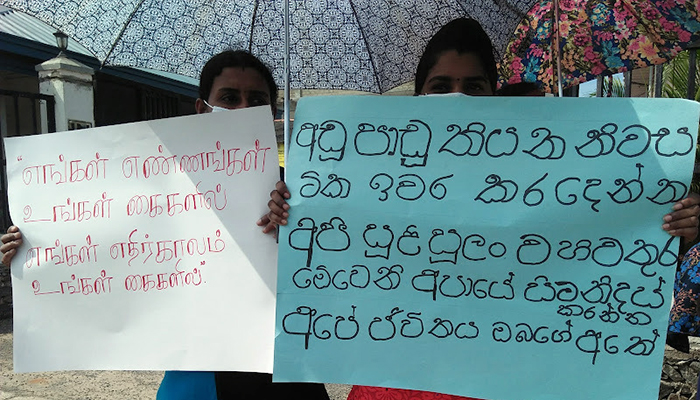 "எங்கள் எண்ணங்கள்
உங்கள் கைகளில்
எங்கள் எதிர்காலம்
உங்கள் கைகளில்.
අඩු පාඩු තියන නිවස
ටික ඉවර කරදෙන්න
අපි සුළි සුලං වහිවතුර
මෙවෙනි අපායේ සිට නිදහස්
කරන්න
අපේ ජීවිතය ඔබගේ අතේ